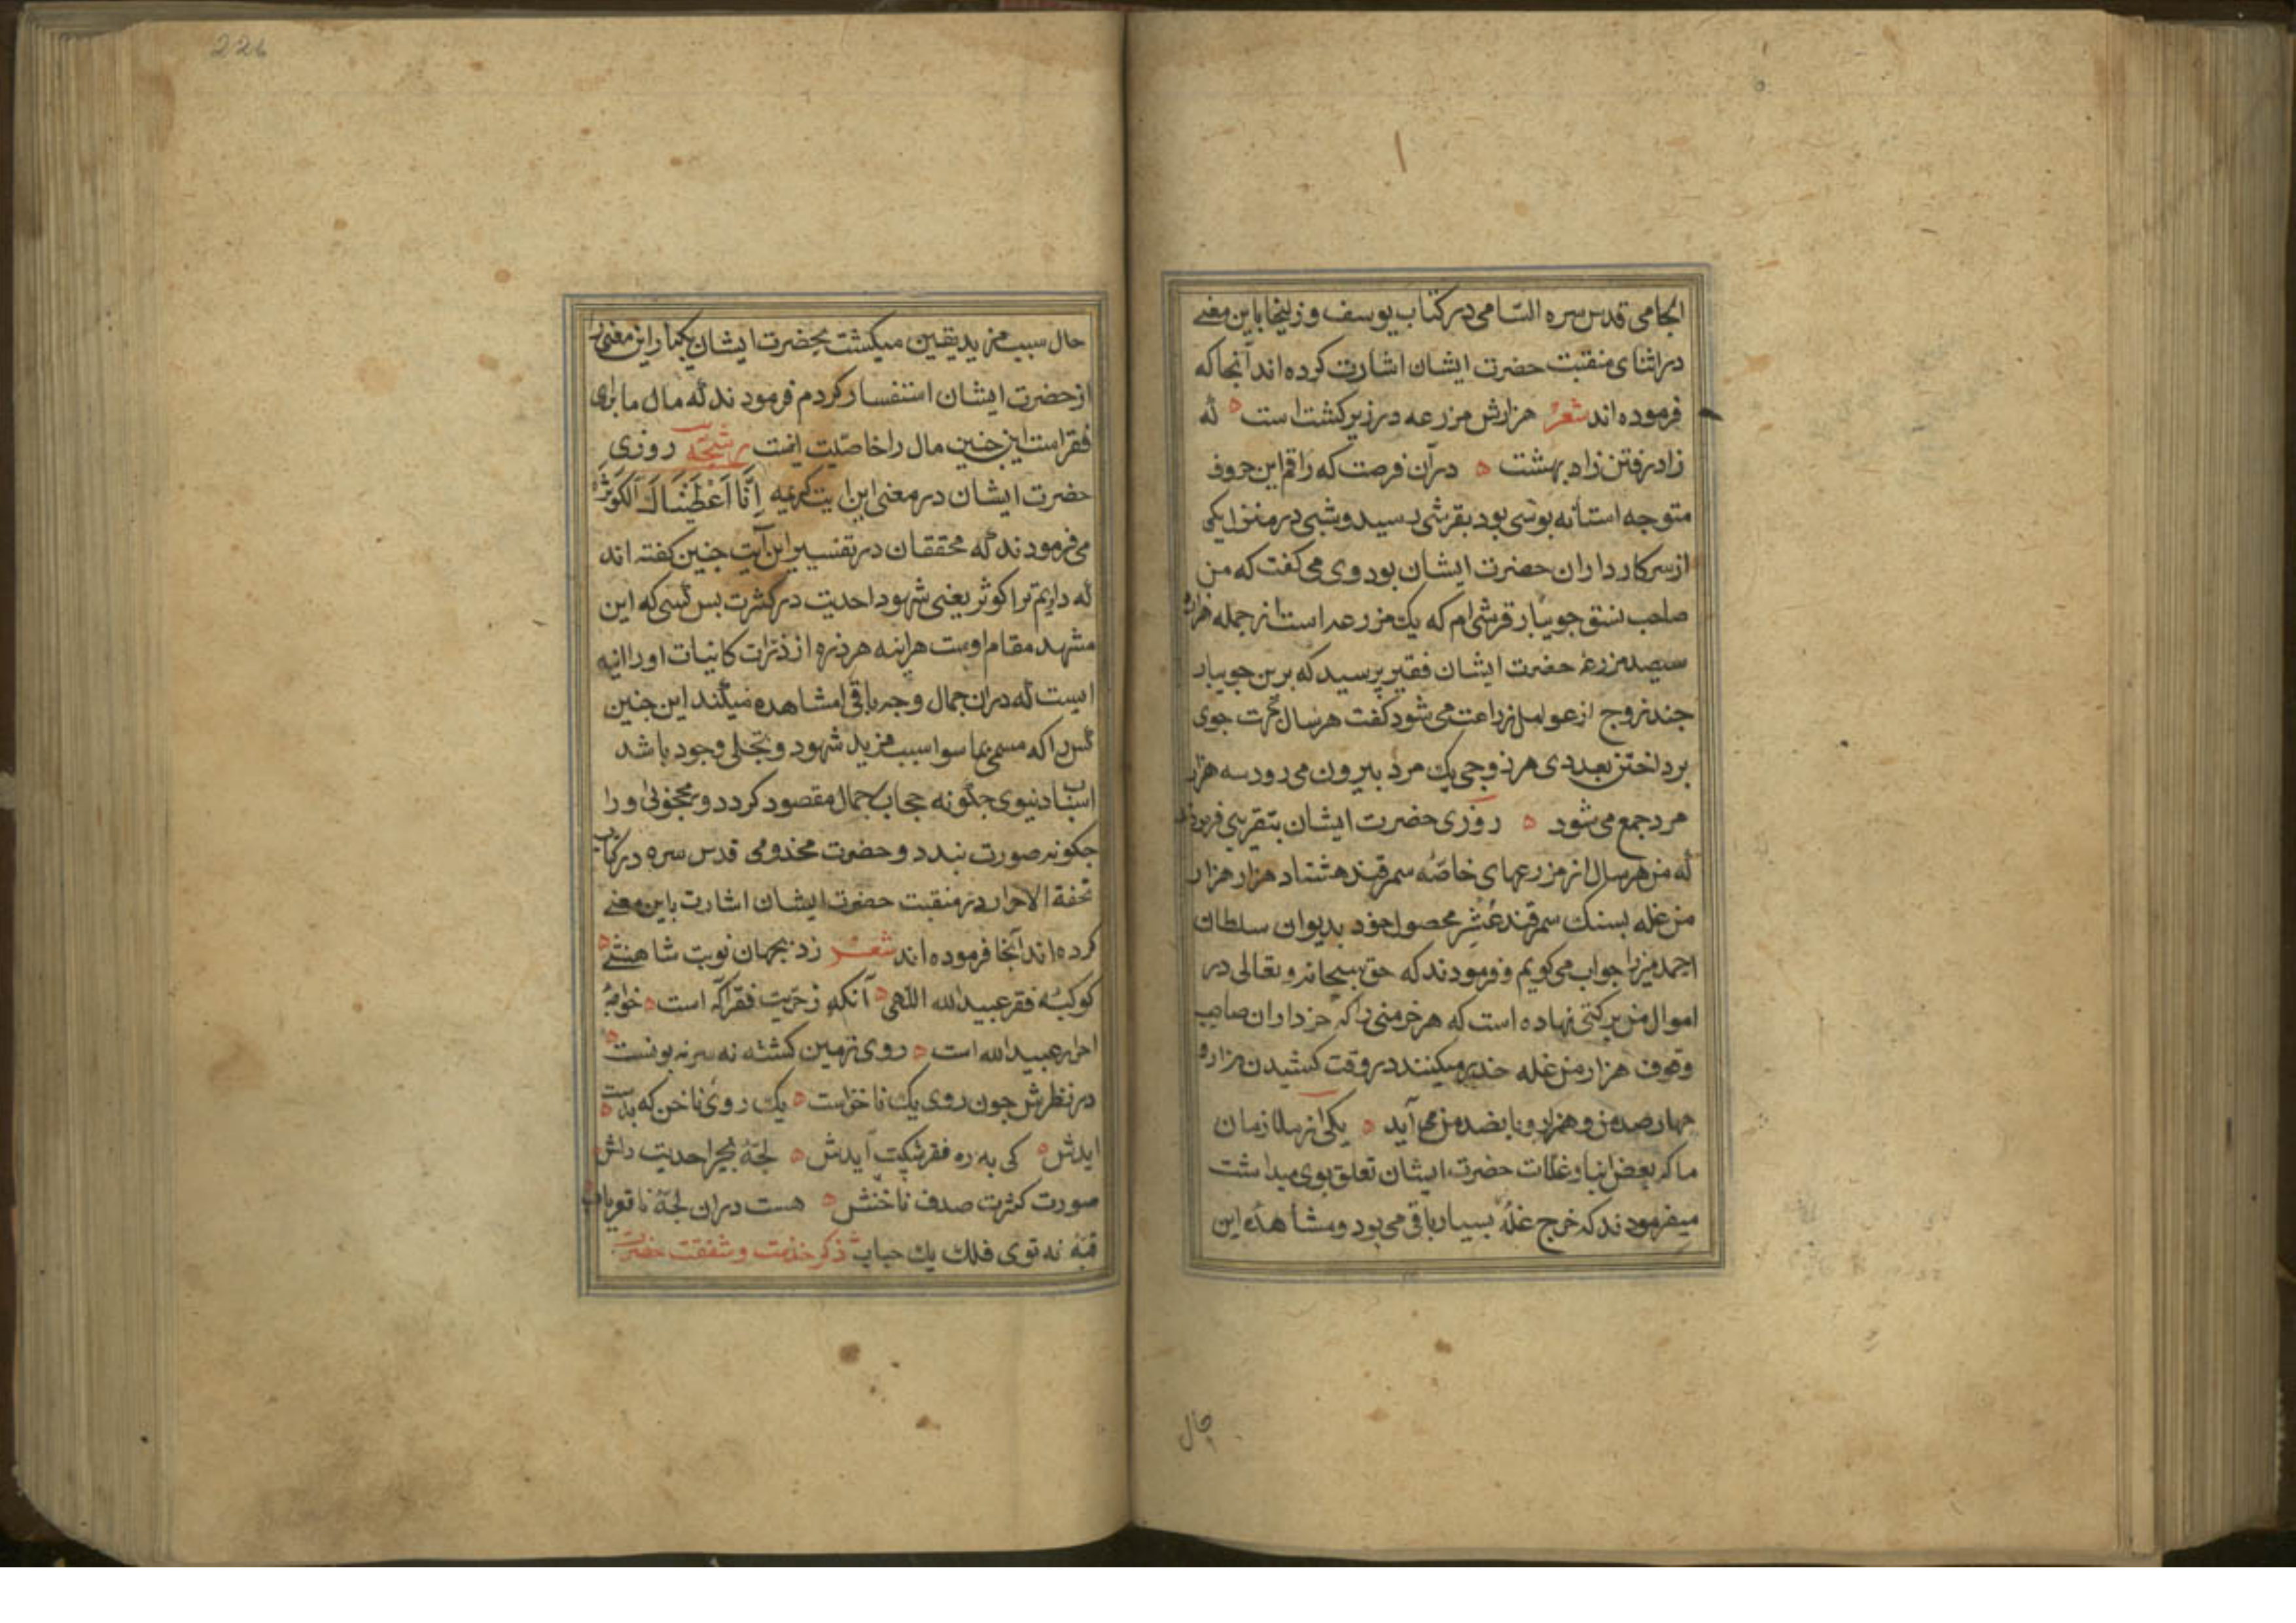 الجامی قدس سره السّامی در کتاب یوسف و زلیخا باین معنے
در اثنای منقبت حضرت ایشان اشارت کرده اند آنجا که
فرموده اند شعر هزارش مزرعه در زیر کشت است که
زاد رفتن زاد بهشت در آن فرصت که راقم این حروف
متوجه استانه بوسی بود بقرشی رسید و شبی در منزل یکی
از سرکار داران حضرت ایشان بود وی می کفت که من
صاحب نسق جویبار قرشی ام که یک مزرعه است از جمله هزار و
سیصد مزرعهٔ حضرت ایشان فقیر پرسید که برین جویبار
چند زوج از عوامل زراعت می شود کفت هر سال جهت جوی
برداختن بعددی هر زوجی یک مرد بیرون می رود سه هزار
مرد جمع می شود روزی حضرت ایشان بتقریبی فرمودند
که من هر سال از مزرعهای خاصّه سمرقند هشتاد هزار هزار
من غله بسنک سمرقند عُشر محصول خود بدیوان سلطان
احمد میرزا جواب می کویم و فرمودند که حق سبحانه و تعالی در
اموال من برکتی نهاده است که هر خرمنی را که حزداران صاحب
وقوف هزار من غله میکنند در وقت کشیدن هزار و
چهار صد من و هزار و پانصد من می آید یکی از ملازمان
ما که بعض انبار غلّات حضرت ایشان تعلق بوی میداشت
میفرمودند که خرج غلّه بسیار باقی می بود و مشاهدهٔ این
حال
226
حال سبب مزید یقین میکشت بحضرت ایشان یکبار این معنی را
از حضرت ایشان استفسار کردم فرمودند که مال ما برای
فقر است این چنین مال را خاصیّت اینست رشحه روزی
حضرت ایشان در معنی این ایت کریمه اِنَّا اَعْطَیْنَاكَ الْکَوْثَرَ
می فرمودند که محققان در تفسیر این آیت چنین کفته اند
که دادیم ترا کوثر یعنی شهود احدیت در کثرت بس کسی که این
مشهد مقام اوست هراینه هر ذره از ذرّات کاینات او را ائینه
ایست که در ان جمال وجه باقی را مشاهده میکند این چنین
کس را که مسمی بما سوا سبب مزید شهود و تجلی وجود باشد
اسباب دنیوی جکونه حجاب جمال مقصود کردد و محجوبی او را
جکونه صورت بندد و حضرت مخدومی قدس سره در کتاب
تحفة الاحرار در منقبت حضرت ایشان اشارت باین معنے
کرده اند آنجا فرموده اند شعر زد بجهان نوبت شاهنشهے
کوکبهٔ فقر عبید الله اللّهی آنکه ز حرّیت فقر آکه است خواجهٔ
احرار عبید الله است روی زمین کشته نه سر نه بونست
در نظرش چون روی یک ناخن است یک روی ناخن که بدست
ایدش کی به ره فقر شکست آیدش لجّهٔ بحر احدیت دلش
صورت کثرت صدف ناخنش هست در ان لجّهٔ نا قعریاب
قبّهٔ نه توی فلک یک حباب ذکر خدمت و شفقت حضرت